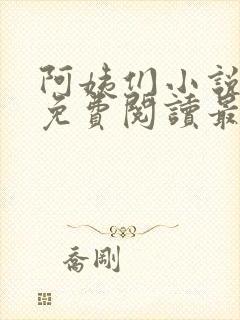 阿姨们小說
免費閱讀最
喬剛